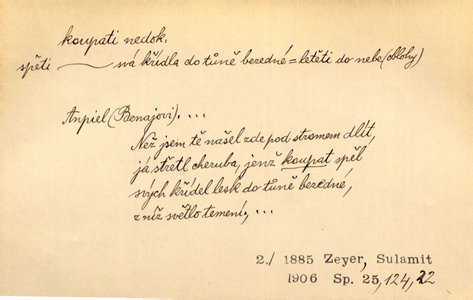 koupati nedok.
spěti —— svá křídla do tůně bezedné = letěti do nebe (oblohy)
Anpiel (Benajovi). ...
Než jsem tě našel zde pod stromem dlít,
já střetl cheruba, jenž koupat spěl
svých křídel lesk do tůně bezedné,
z níž světlo temení, ...
2./ 1885 Zeyer, Sulamit
1906 Sp. 25, 124, 22